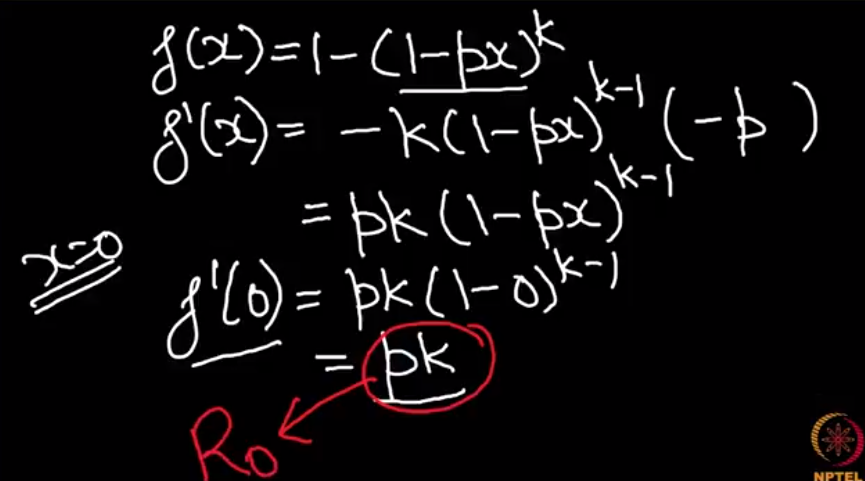 f(x) = 1 - (1 - px)^k
f'(x) = - k(1 - px)^{k-1} (-p)
= pk (1 - px)^{k-1}
x=0
f'(0) = pk (1 - 0)^{k-1}
= pk
R₀
NPTEL